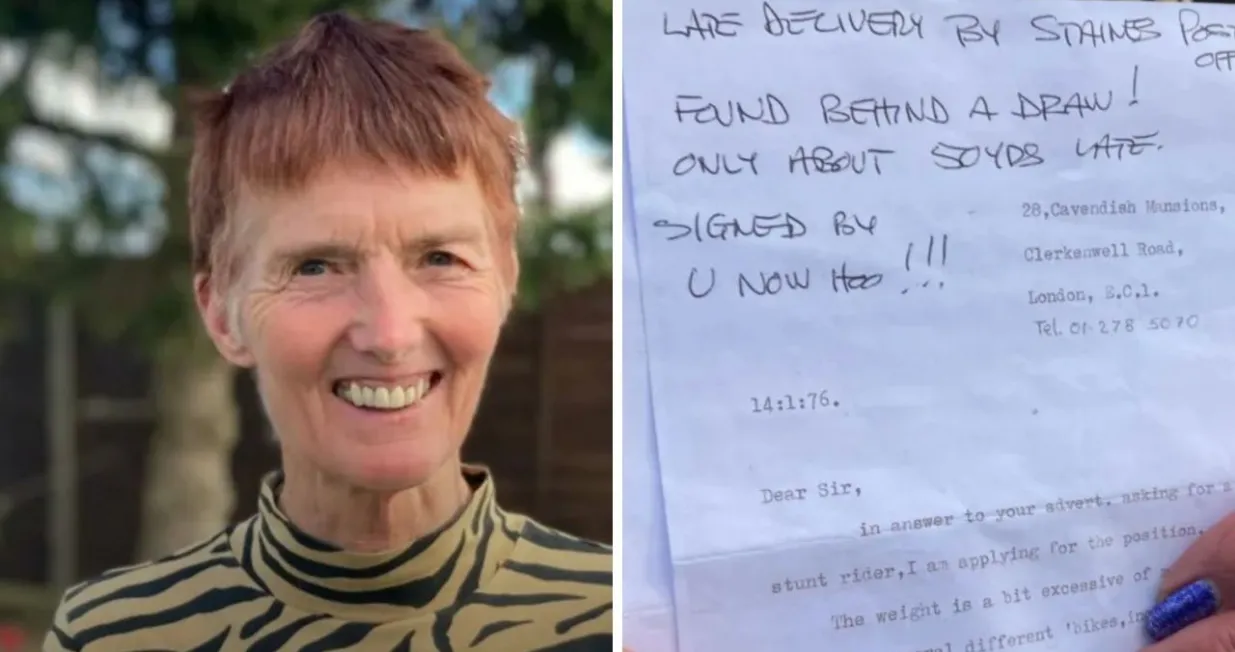 LATE DELIVERY BY STAINES POST
OFF
FOUND BEHIND A DRAW!
ONLY ABOUT 50YDS LATE.
SIGNED BY
U NOW HOO !!!
28,Cavendish Mansions,
Clerkenwell Road,
London, E.C.1.
Tel. 01-278 5070
14:1:76.
Dear Sir,
in answer to your advert, asking for a
stunt rider,I am applying for the position.
The weight is a bit excessive of
different 'bikes,in